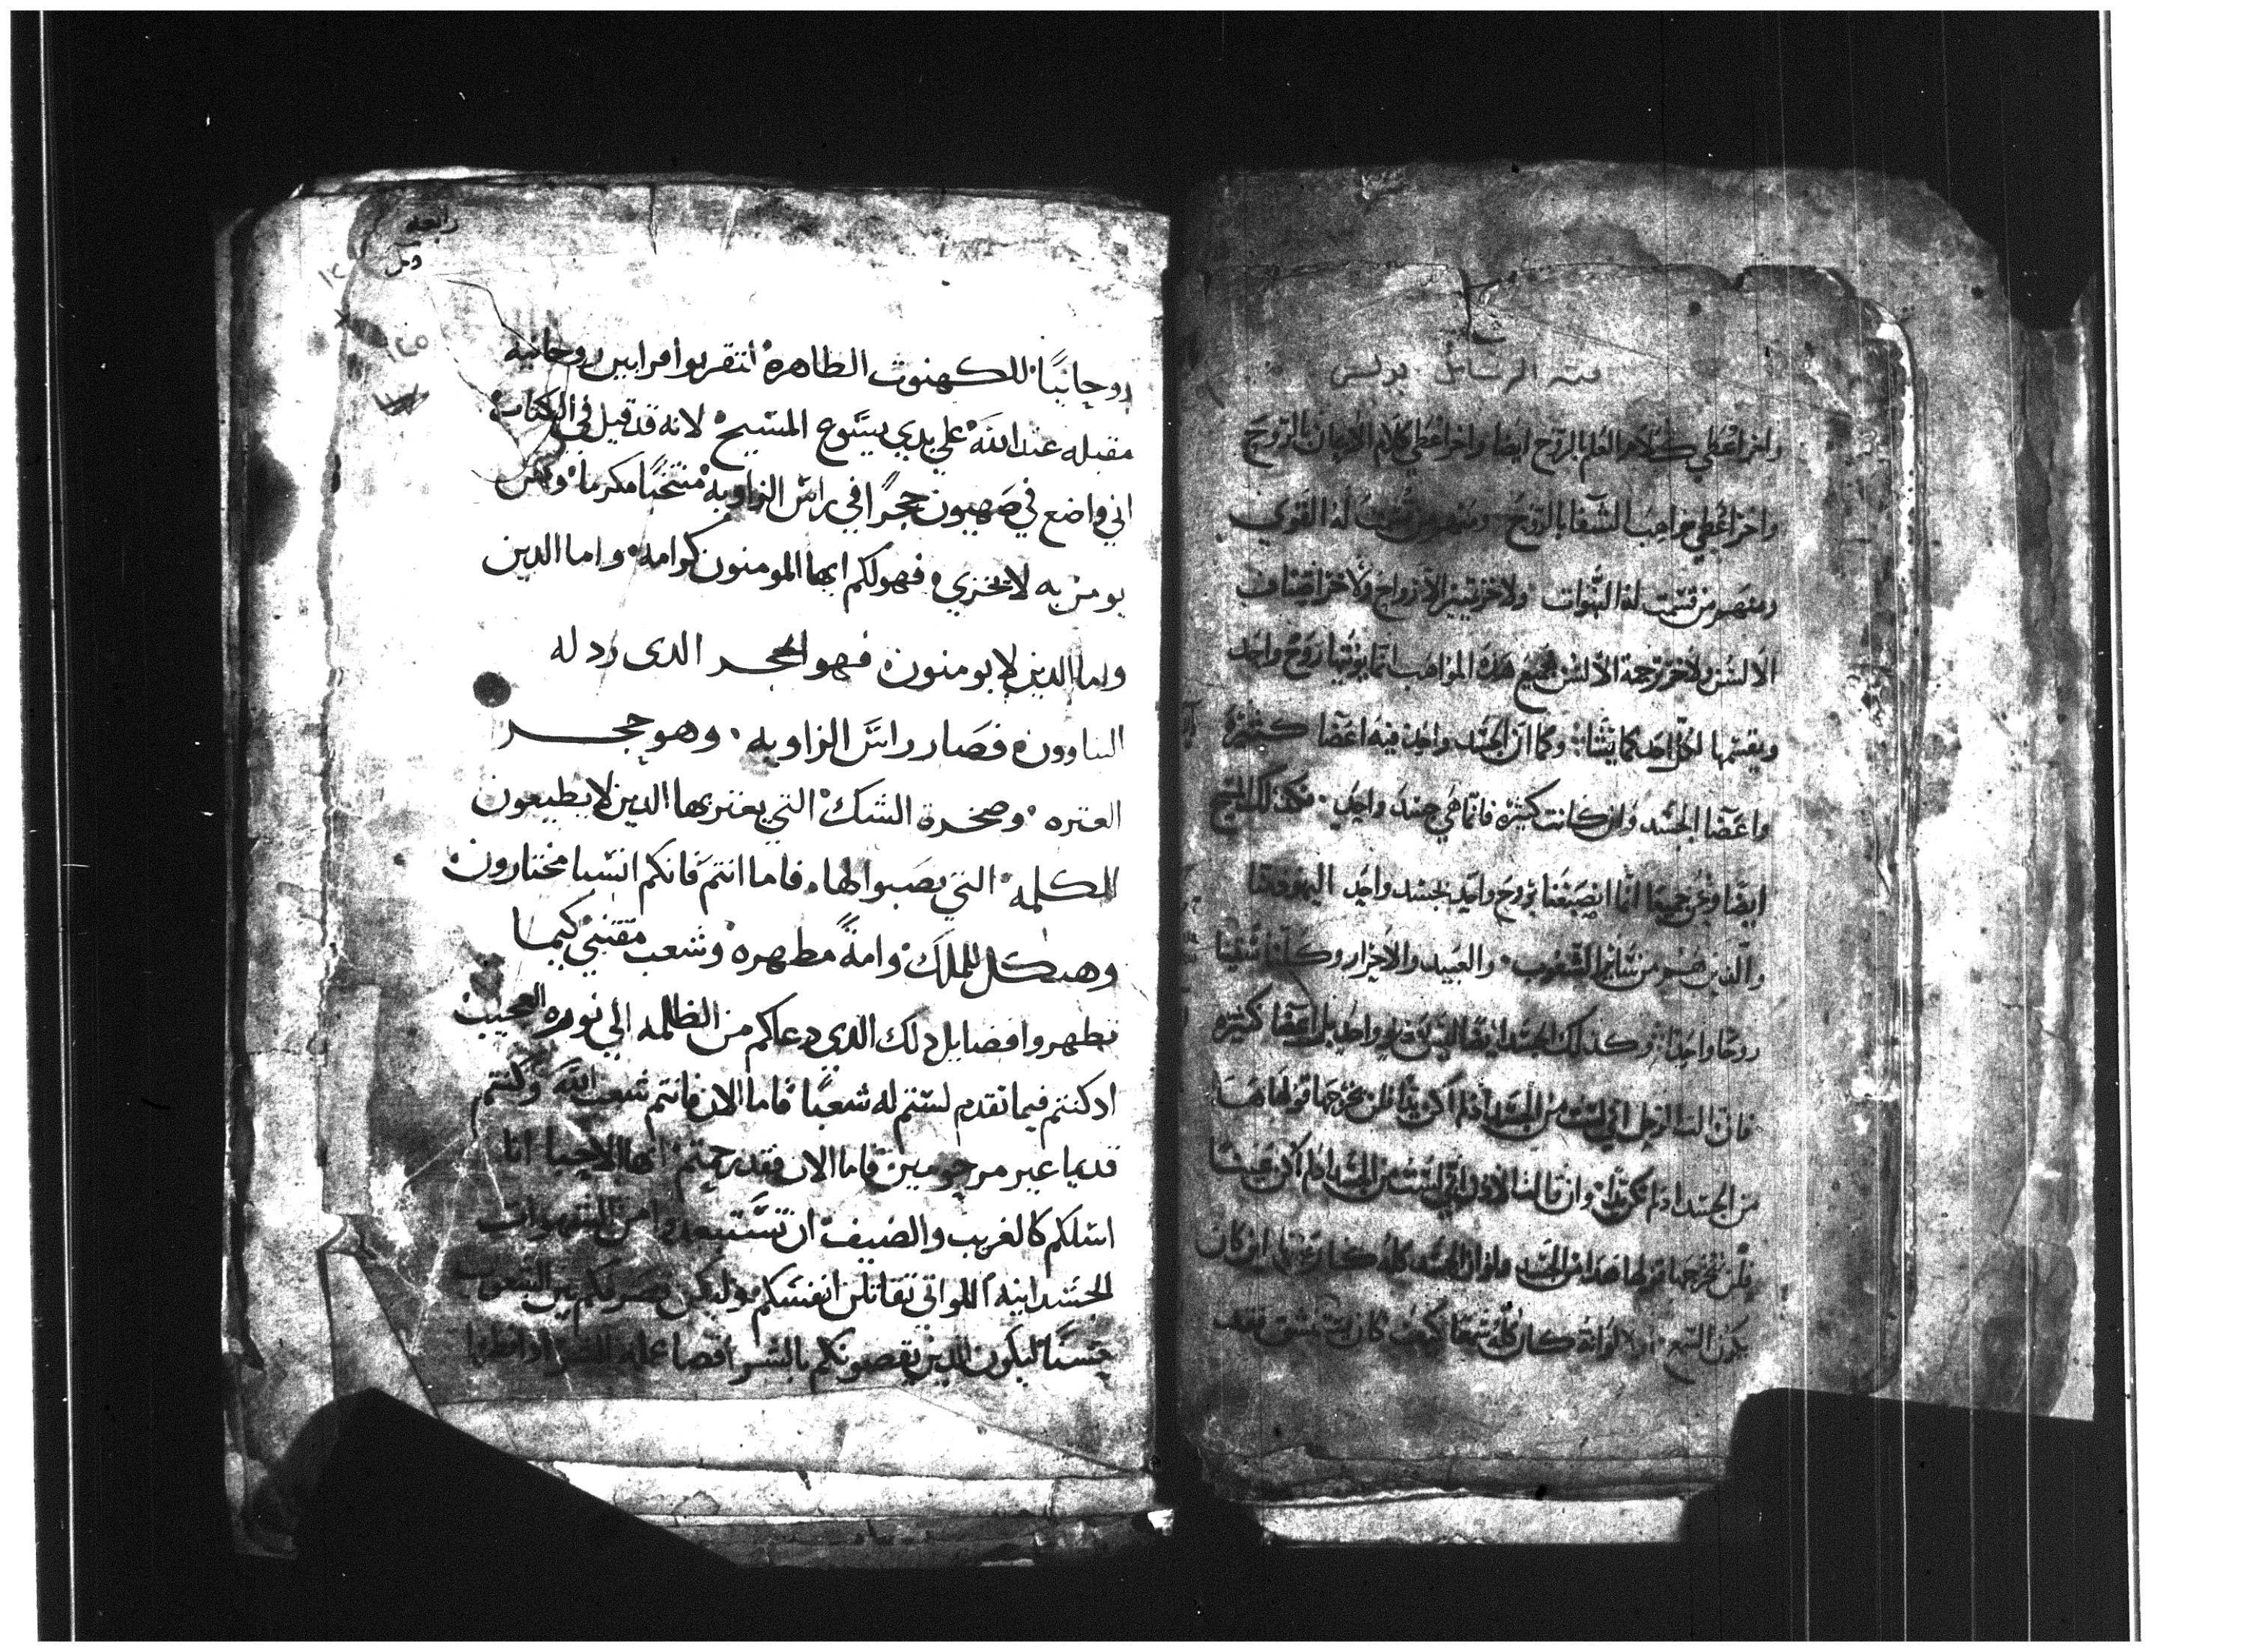 فيه الرسائل بولس
واخر اعطي كلام العلم بالروح ايضا واخر اعطي كلام الايمان بالروح
واخر اعطي مواهب الشفا بالروح ومنهم من قسمت له القوي
ومنهم من قسمت له النبوات ولاخر تمييز الارواح ولاخر اصناف
الالسن ولاخر ترجمة الالسن فجميع هذه المواهب انما يؤتيها روح واحد
ويقسمها لكل احد كما يشا وكما ان الجسد واحد فيه اعضا كثيره
واعضا الجسد وان كانت كثيره فانما هي جسد واحد فكذلك المسيح
ايضا ونحن جميعا انما انصبغنا بروح واحد لجسد واحد اليهود منا
والدين هم من سائر الشعوب والعبيد والاحرار وكلنا سقينا
روحا واحدا وكذلك الجسد ايضا ليس هو واحد بل اعضا كثيره
فان قالت الرجل اني لست من الجسد اذ لم اكن يدا فلن يخرجها قولها هذا
من الجسد اذ لم تكن يدا وان قالت الاذن اني لست من الجسد اذ لم اكن عينا
فلن يخرجها قولها هذا من الجسد ولو ان الجسد كله كان عينا اين كان
يكون السمع او لو انه كان كله سمعا كيف كان يستنشق فقد
رابعه
روحانيًا للكهنوت الطاهره لتقربوا قرابين روحانيه
مقبله عند الله علي يدي يسوع المسيح لانه قد قيل في الكتاب
اني واضع في صهيون حجرًا في راس الزاويه منتخبًا مكرما ومن
يومن به لا يخزي فهو لكم ايها المومنون كرامه واما الدين
واما الدين لا يومنون فهو الحجر الدى رد له
البناوون فصار راس الزاويه وهو حجر
العتره وصخرة الشك التي يعتر بها الدين لا يطيعون
الكلمه التي نصبوا لها فاما انتم فانكم انسبا مختارون
وهيكل للملك وامةً مطهره وشعب مقتني كيما
تطهروا فضايل دلك الدي دعاكم من الظلمه الي نوره العجيب
اد كنتم فيما تقدم لستم له شعبًا فاما الان فانتم شعب الله وكنتم
قديما غير مرحومين فاما الان فقد رحمتم ايها الاحبا انا
اسلكم كالغريب والضيف ان تستبعدوا من الشهوات
الجسدانيه اللواتي تقاتلن انفسكم وليكن تصرفكم بين الشعوب
حسنًا ليكون الدين يقصونكم بالشر